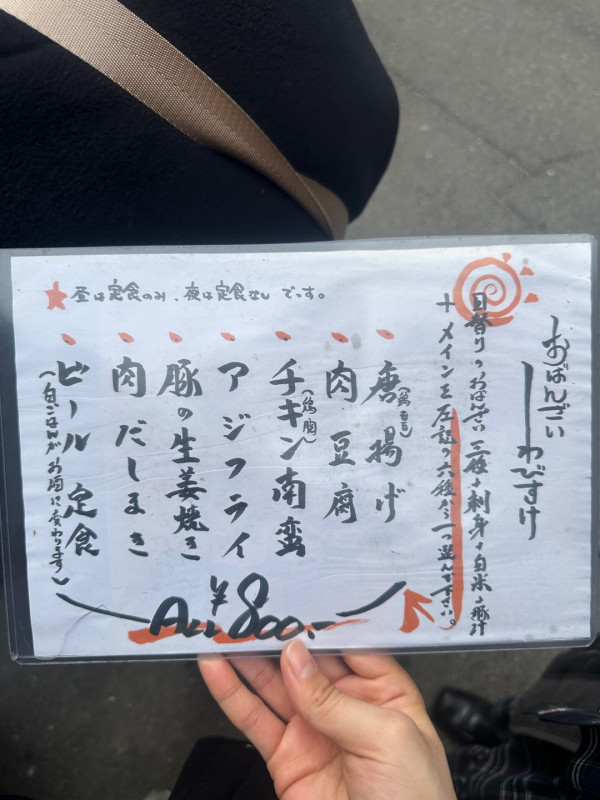 おばんざい
わびすけ
日替りのおばんざい三種+刺身+白米+豚汁
+メインを左記の六種から一つ選んで下さい。
唐揚げ
(鶏もも)
肉豆腐
チキン南蛮
(鶏胸)
アジフライ
豚の生姜焼き
肉だしまき
ビール定食
(白ごはんがお酒に変わります)
ALL ¥800.-
★昼は定食のみ、夜は定食なしです。